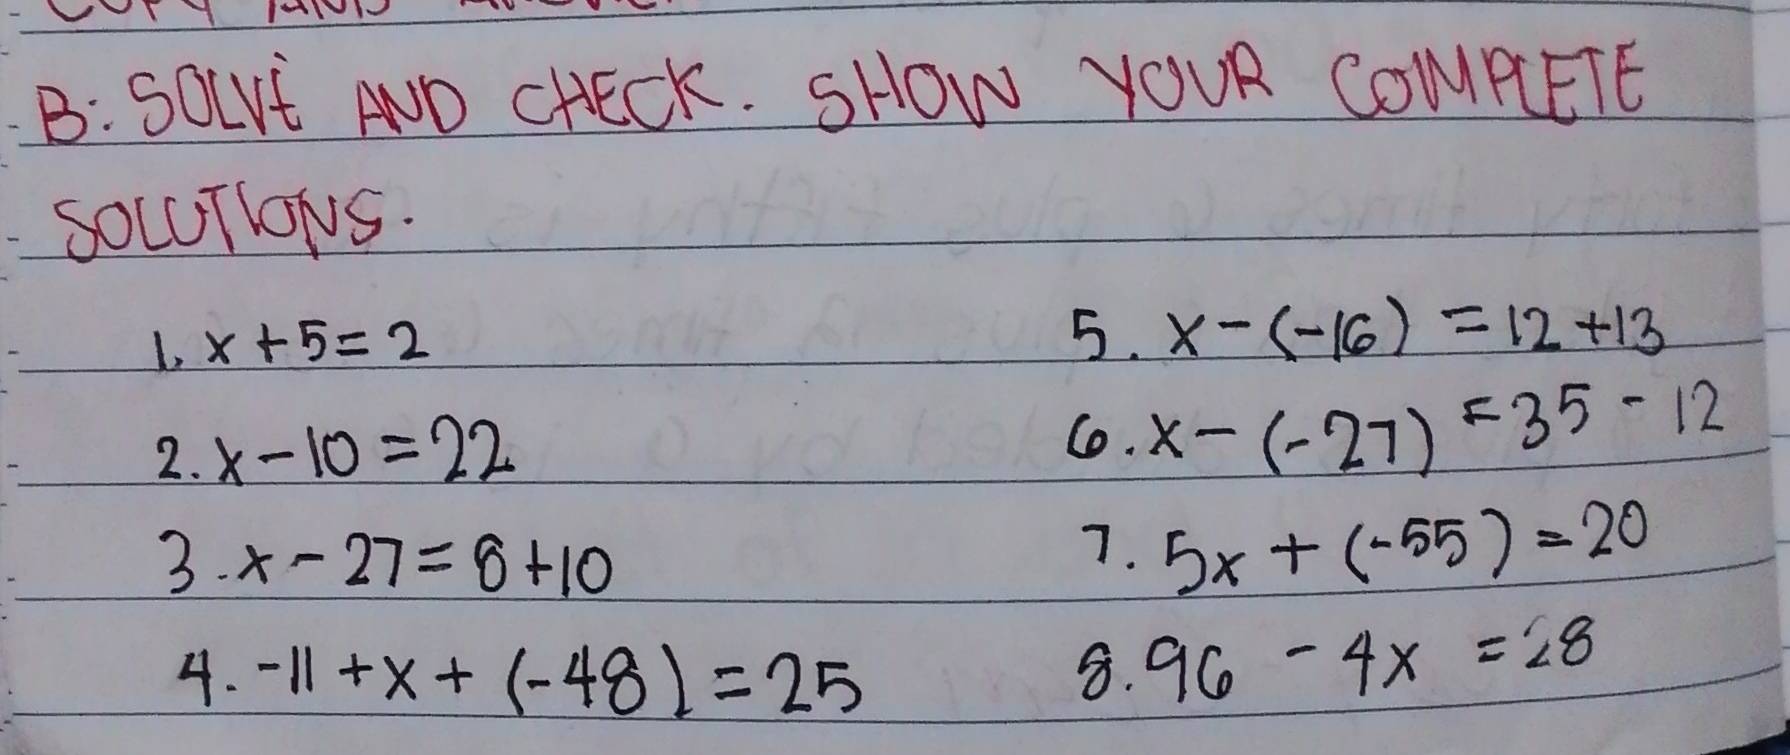 B: SOLVE AND CHECK. SHOW YOUR COMPLETE
SOLUTIONS.
1. x + 5 = 2
2. x - 10 = 22
3. x - 27 = 8 + 10
4. -11 + x + (-48) = 25
5. x - (-16) = 12 + 13
6. x - (-27) = 35 - 12
7. 5x + (-55) = 20
8. 96 - 4x = 28